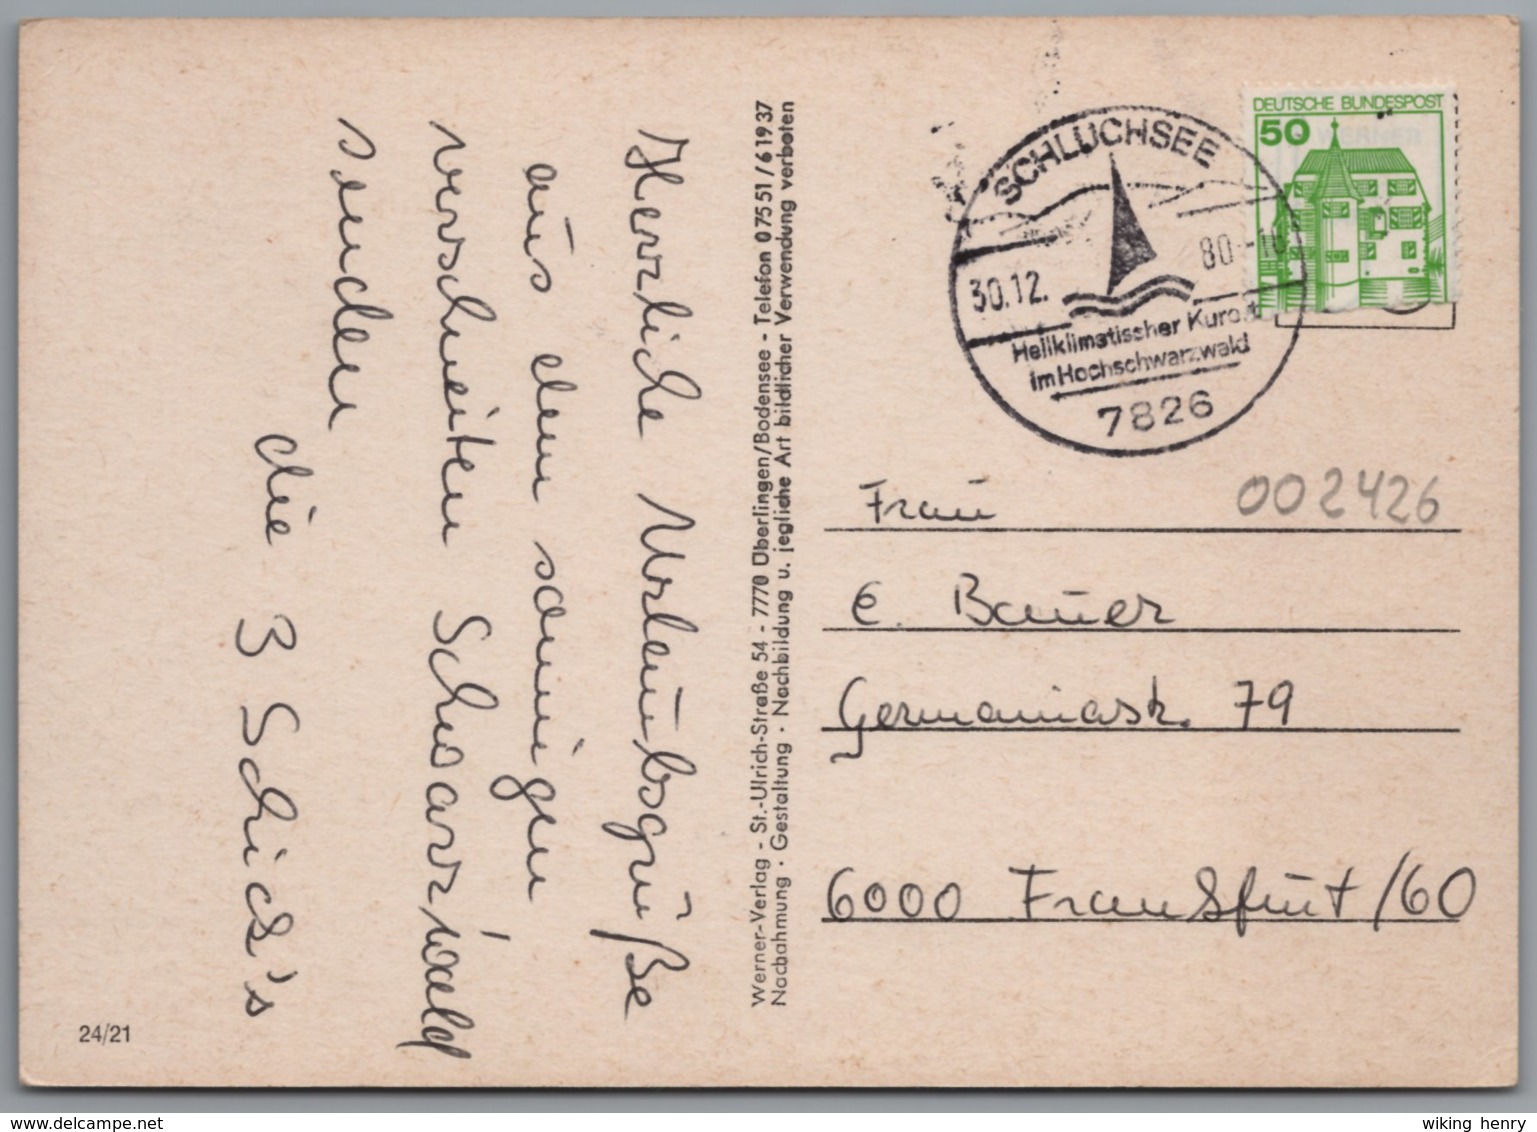 Herzliche Urlaubsgrüße
aus dem sonnigen
verschneiten Schwarzwald
senden
die 3 Schick's
24/21
Werner-Verlag - St.-Ulrich-Straße 54 - 7770 Überlingen/Bodensee - Telefon 07551/61937
Nachahmung · Gestaltung · Nachbildung u. jegliche Art bildlicher Verwendung verboten
SCHLUCHSEE
30.12. 80-18
Heilklimatischer Kurort
im Hochschwarzwald
7826
DEUTSCHE BUNDESPOST
50
002426
Frau
E. Bauer
Germaniastr. 79
6000 Frankfurt/60
www.delcampe.net
wiking henry